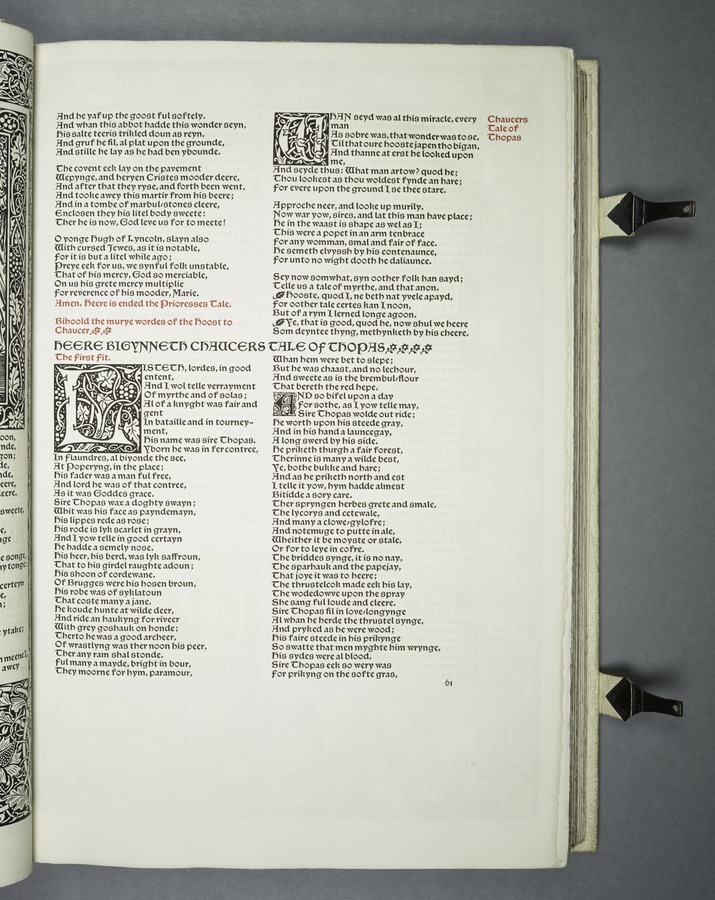 And he yaf up the goost ful softely.
And whan this abbot hadde this wonder seyn,
His salte teeris trikled doun as reyn,
And gruf he fil, al plat upon the grounde,
And stille he lay as he had ben ybounde.
The covent eek lay on the pavement
Wepynge, and heryen Cristes mooder deere,
And after that they ryse, and forth been went,
And tooke awey this martir from his beere;
And in a tombe of marbul-stones cleere,
Enclosen they his litel body sweete:
Ther he is now, God leve us for to meete!
O yonge Hugh of Lyncoln, slayn also
With cursed Jewes, as it is notable,
For it is but a litel while ago;
Preye eek for us, we synful folk unstable,
That of his mercy, God so merciable,
On us his grete mercy multiplie
For reverence of his mooder, Marie.
Amen. Heere is ended the Prioresses Tale.
Bihoold the murye wordes of the Hoost to
Chaucer
WHAN seyd was al this miracle, every
man
As sobre was, that wonder was to se,
Til that oure hooste japen tho bigan,
And thanne at erst he looked upon
me,
And seyde thus: What man artow? quod he;
Thou lookest as thou woldest fynde an hare;
For evere upon the ground I se thee stare.
Approche neer, and looke up murily.
Now war yow, sires, and lat this man have place;
He in the waast is shape as wel as I;
This were a popet in an arm tenbrace
For any womman, smal and fair of face.
He semeth elvyssh by his contenaunce,
For unto no wight dooth he daliaunce.
Sey now somwhat, syn oother folk han sayd;
Telle us a tale of myrthe, and that anon.
Hooste, quod I, ne beth nat yvele apayd,
For oother tale certes kan I noon,
But of a rym I lerned longe agoon.
Ye, that is good, quod he, now shul we heere
Som deyntee thyng, methynketh by his cheere.
Chaucers
Tale of
Thopas
HEERE BIGYNNETH CHAUCERS TALE OF THOPAS
The first fit.
LISTETH, lordes, in good
entent,
And I wol telle verrayment
Of myrthe and of solas;
Al of a knyght was fair and
gent
In bataille and in tourney-
ment,
His name was sire Thopas.
Yborn he was in fer contree,
In Flaundres, al biyonde the see,
At Poperyng, in the place;
His fader was a man ful free,
And lord he was of that contree,
As it was Goddes grace.
Sire Thopas wax a doghty swayn;
Whit was his face as payndemayn,
His lippes rede as rose;
His rode is lyk scarlet in grayn,
And I yow telle in good certayn
He hadde a semely nose.
His heer, his berd, was lyk saffroun,
That to his girdel raughte adoun;
His shoon of cordewane.
Of Brugges were his hosen broun,
His robe was of syklatoun
That coste many a jane.
He koude hunte at wilde deer,
And ride an haukyng for riveer
With grey goshauk on honde;
Therto he was a good archeer,
Of wrastlyng was ther noon his peer,
Ther any ram shal stonde.
Ful many a mayde, bright in bour,
They moorne for hym, paramour,
Whan hem were bet to slepe;
But he was chaast, and no lechour,
And sweete as is the brembul-flour
That bereth the red hepe.
AND so bifel upon a day
For sothe, as I yow telle may,
Sire Thopas wolde out ride;
He worth upon his steede gray,
And in his hand a launcegay,
A long swerd by his side.
He priketh thurgh a fair forest,
Therinne is many a wilde best,
Ye, bothe bukke and hare;
And as he priketh north and est
I telle it yow, hym hadde almest
Bitidde a sory care.
Ther spryngen herbes grete and smale,
The lycorys and cetewale,
And many a clowe-gylofre;
And notemuge to putte in ale,
Wheither it be moyste or stale,
Or for to leye in cofre.
The briddes synge, it is no nay,
The sparhauk and the papejay,
That joye it was to heere;
The thrustelcok made eek his lay,
The wodedowve upon the spray
She sang ful loude and cleere.
Sire Thopas fil in love-longynge
Al whan he herde the thrustel synge,
And pryked as he were wood;
His faire steede in his prikynge
So swatte that men myghte him wrynge,
His sydes were al blood.
Sire Thopas eek so wery was
For prikyng on the softe gras,
61